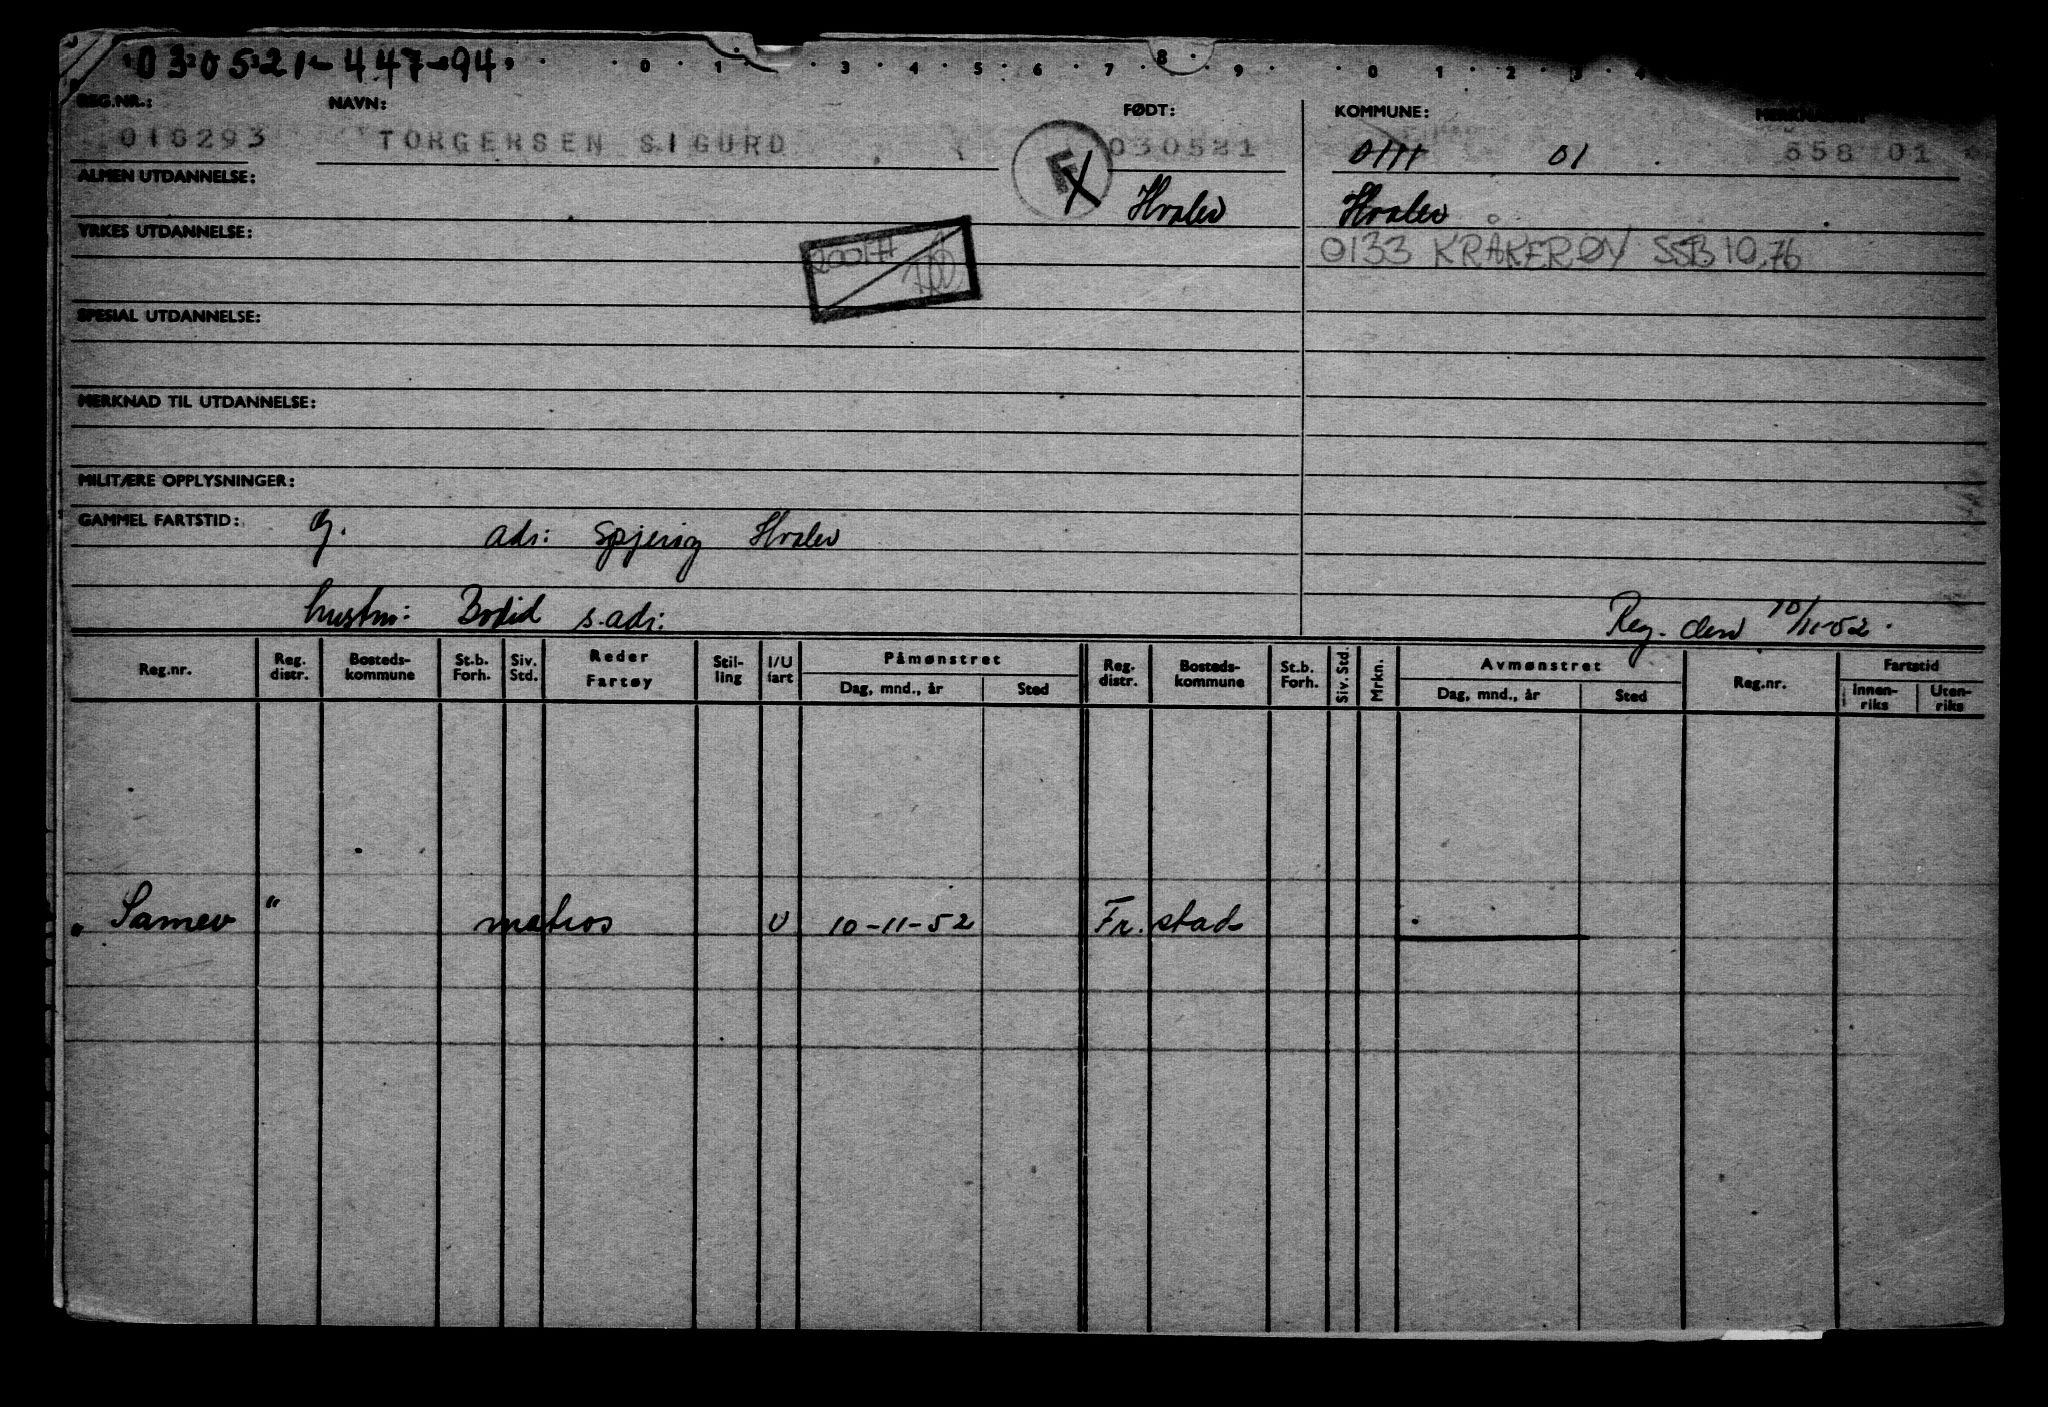 030521-447-94
0 1 3 4 5 6 7 8 9 0 1 2 3 4
REG.NR.: NAVN: FØDT: KOMMUNE:
018293 TORGERSEN SIGURD 030521 0111 01 558 01
ALMEN UTDANNELSE:
Hvaler Hvaler
YRKES UTDANNELSE:
0133 KRÅKERØY SSB 10.76
SPESIAL UTDANNELSE:
MERKNAD TIL UTDANNELSE:
MILITÆRE OPPLYSNINGER:
GAMMEL FARTSTID: g. adr: Spjerøy Hvaler
hustru: Bodid s.adr: Reg. den 10/11-52.
Reg.nr. Reg. distr. Bosteds-kommune St.b. Forh. Siv. Std. Reder Fartøy Stil-ling I/U fart Påmønstret Dag, mnd., år Sted Reg. distr. Bosteds-kommune St.b. Forh. Siv. Std. Mrkn. Avmønstret Dag, mnd., år Sted Reg.nr. Fartstid Innen-riks Uten-riks
"Samev" matros U 10-11-52 Fr.stad